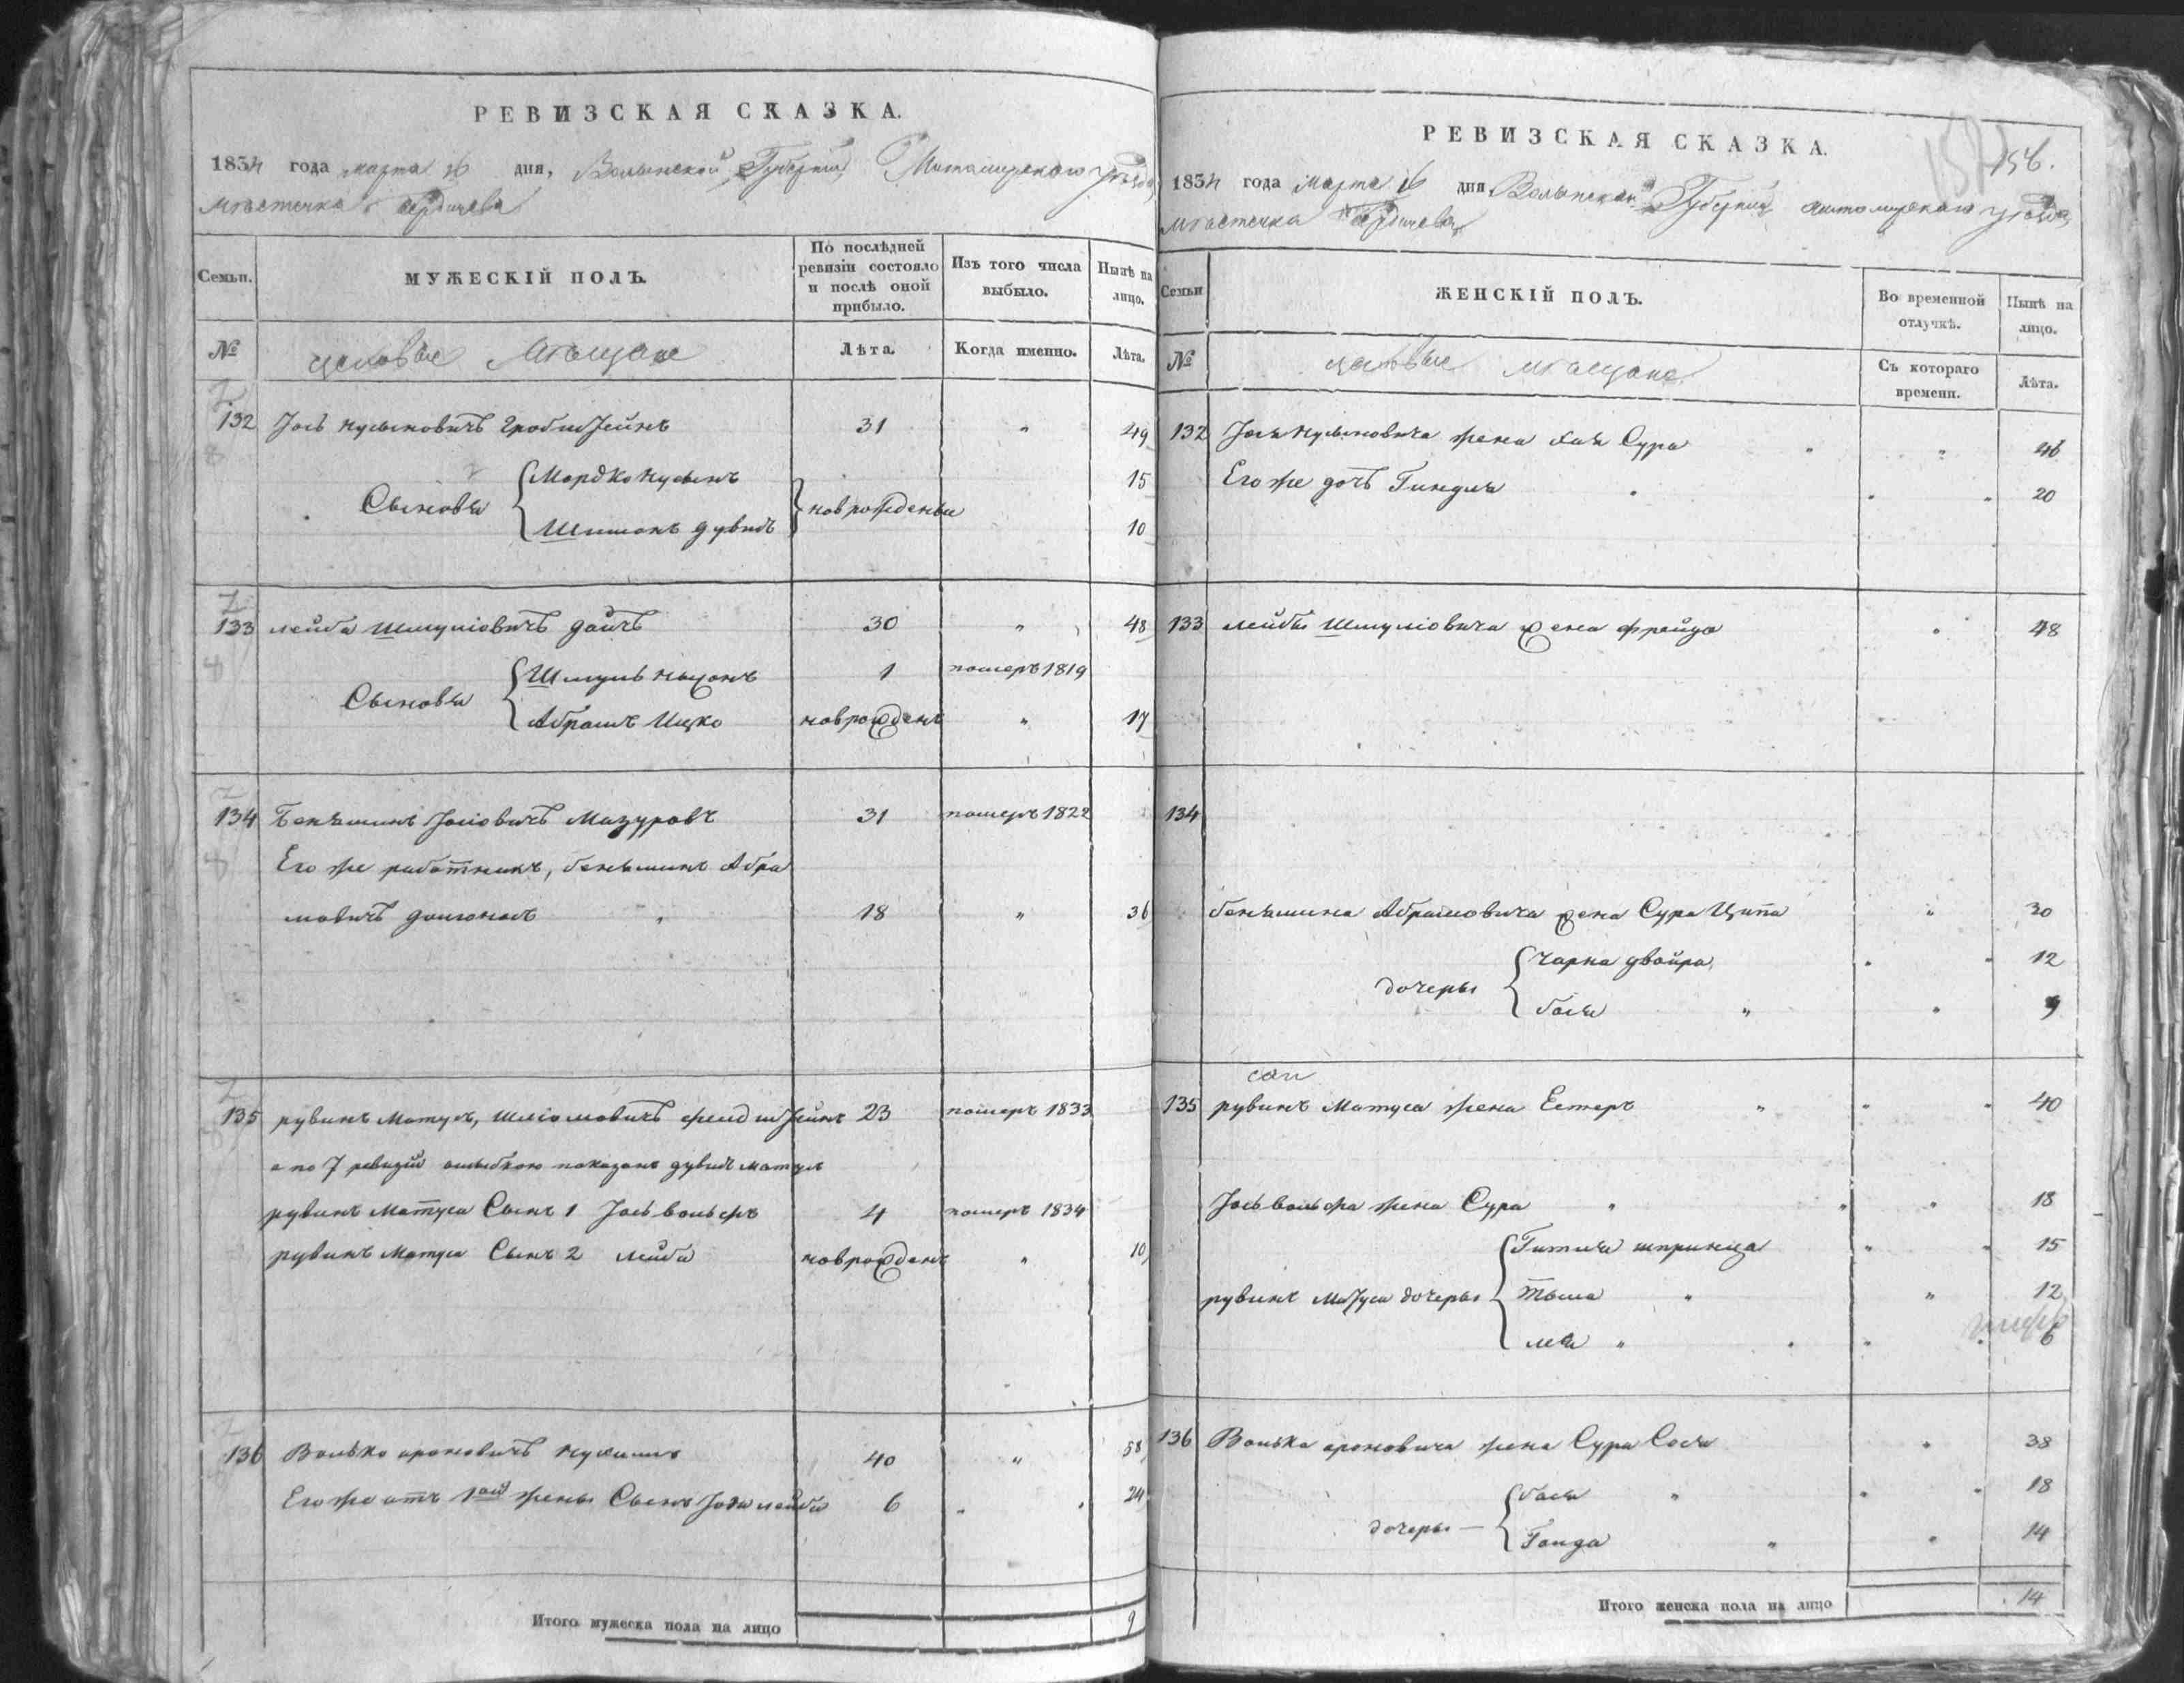 РЕВИЗСКАЯ СКАЗКА.
1834 года марта 16 дня, Волынской Губерніи Житомирскаго уѣзда
мѣстечка Бердичева
Семьи.
МУЖЕСКІЙ ПОЛЪ.
По послѣдней ревизіи состояло и послѣ оной прибыло.
Изъ того числа выбыло.
Нынѣ на лицо.
№
цеховые Мѣщане
Лѣта.
Когда именно.
Лѣта.
132 Іось Нусыновичъ Гробштейнъ 31 " 49
Сыновья Мордко Нусынъ новрожденые 15
Шимонъ дувидъ 10
133 лейба Шмуліовичъ дайчъ 30 " 48
Сыновья Шмуль 1 померъ 1819
Абрамъ Ицко новрожденъ " 17
134 Беньминъ Іосіовичъ Мазуровъ 31 померъ 1822
Его же работникъ, беньминъ Абра
мовичъ 18 " 36
135 рувинъ Матусъ, Шліомовичъ фелдштейнъ 23 померъ 1833
а по 7 ревизіи ошыбкою показанъ дувидъ матусъ
рувинъ Матуса Сынъ 1 Іось вольфъ 4 померъ 1834
рувинъ Матуса Сынъ 2 лейба новрожденъ " 10
136 Волько ароновичъ 40 " 58
Его же отъ 1ой жены Сынъ лейба 6 " 24
Итого мужеска пола на лицо 9
РЕВИЗСКАЯ СКАЗКА.
156.
1834 года Марта 16 дня Волынской Губерніи житомирскаго уѣзда
мѣстечка Бердичева
Семьи
ЖЕНСКІЙ ПОЛЪ.
Во временной отлучкѣ.
Нынѣ на лицо.
№
цеховые мѣщане
Съ котораго времени.
Лѣта.
132 Іося Нусыновича жена хая Сура " " 46
Его же дочь Гиндля " " 20
133 лейбы Шмуліовича жена фрейда " 48
134
беньмина Абрамовича жена Сура Ципа " 30
дочеры Чарна двойра " " 12
бася " " 9
135 рувинъ Матуса жена Естеръ " " " 40
Іось вольфа жена Сура " " " 18
рувинъ Матуса дочеры Гитля шпринца " " 15
" " 12
лея " " " 6
136 Волька ароновича жена Сура Сося " 38
дочеры — бася " " " 18
Гонда " " 14
Итого женска пола на лицо 14